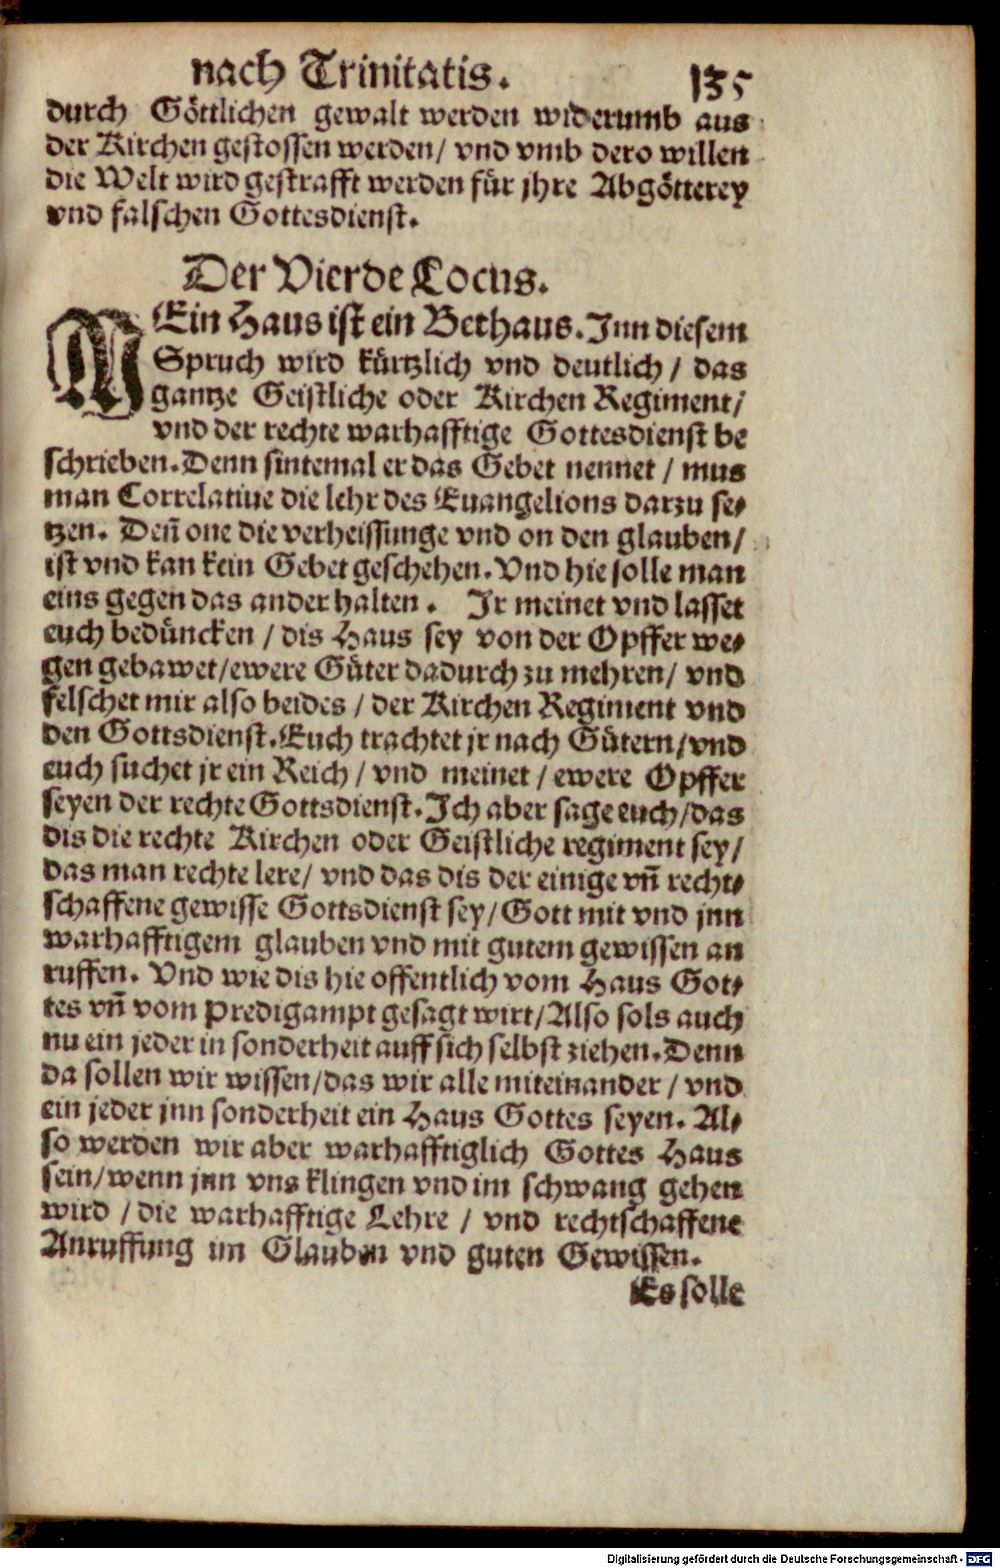 nach Trinitatis. 135
durch Göttlichen gewalt werden widerumb aus
der Kirchen gestossen werden/ vnd vmb dero willen
die Welt wird gestrafft werden für jhre Abgötterey
vnd falschen Gottesdienst.
Der Vierde Locus.
MEin Haus ist ein Bethaus. Inn diesem
Spruch wird kürtzlich vnd deutlich / das
gantze Geistliche oder Kirchen Regiment/
vnd der rechte warhafftige Gottesdienst be
schrieben. Denn sintemal er das Gebet nennet / mus
man Correlatiue die lehr des Euangelions darzu se⸗
tzen. Deñ one die verheissunge vnd on den glauben/
ist vnd kan kein Gebet geschehen. Vnd hie solle man
eins gegen das ander halten. Ir meinet vnd lasset
euch bedüncken / dis Haus sey von der Opffer we⸗
gen gebawet/ewere Güter dadurch zu mehren/ vnd
felschet mir also beides / der Kirchen Regiment vnd
den Gottsdienst. Euch trachtet jr nach Gütern/vnd
euch suchet jr ein Reich / vnd meinet / ewere Opffer
seyen der rechte Gottsdienst. Ich aber sage euch/das
dis die rechte Kirchen oder Geistliche regiment sey/
das man rechte lere/ vnd das dis der einige vñ recht⸗
schaffene gewisse Gottsdienst sey/Gott mit vnd jnn
warhafftigem glauben vnd mit gutem gewissen an
ruffen. Vnd wie dis hie offentlich vom Haus Got⸗
tes vñ vom Predigampt gesagt wirt/Also sols auch
nu ein jeder in sonderheit auff sich selbst ziehen. Denn
da sollen wir wissen/das wir alle miteinander / vnd
ein jeder jnn sonderheit ein Haus Gottes seyen. Al⸗
so werden wir aber warhafftiglich Gottes Haus
sein/wenn jnn vns klingen vnd im schwang gehen
wird / die warhafftige Lehre / vnd rechtschaffene
Anruffung im Glauben vnd guten Gewissen.
Es solle
Digitalisierung gefördert durch die Deutsche Forschungsgemeinschaft - DFG